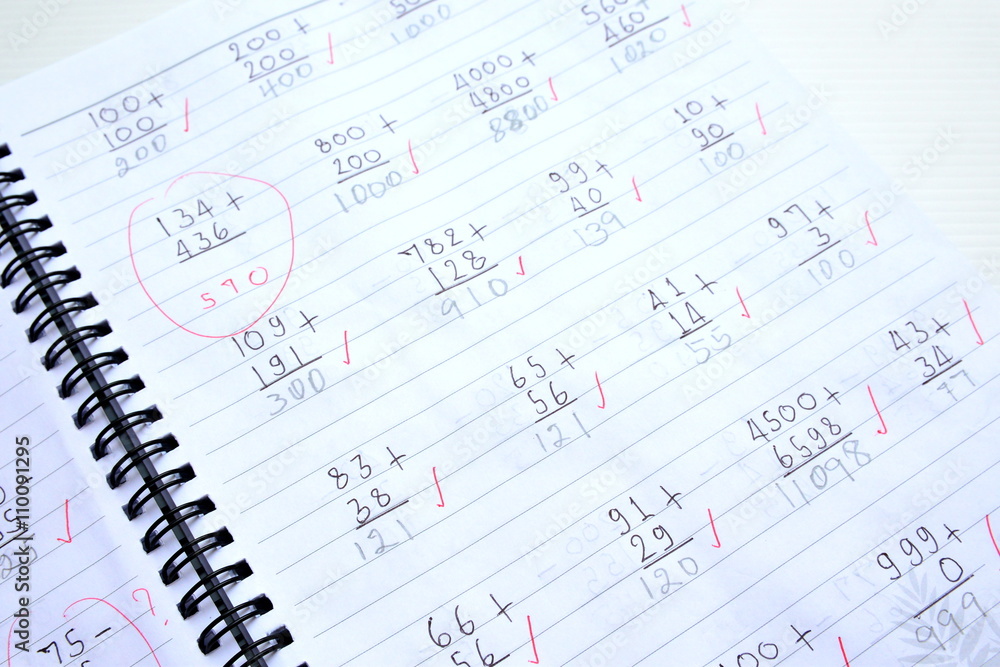 100+
100
200
200+
200
400
1000
134+
436
570
800+
200
1000
4000+
4800
8800
560
460
1020
109+
191
300
782+
128
910
99+
40
139
10+
90
100
83+
38
121
65+
56
121
41+
14
55
97+
3
100
91+
29
120
4500+
6598
11098
43+
34
77
66+
56
999+
0
999
75-
?
Adobe Stock | #110091295